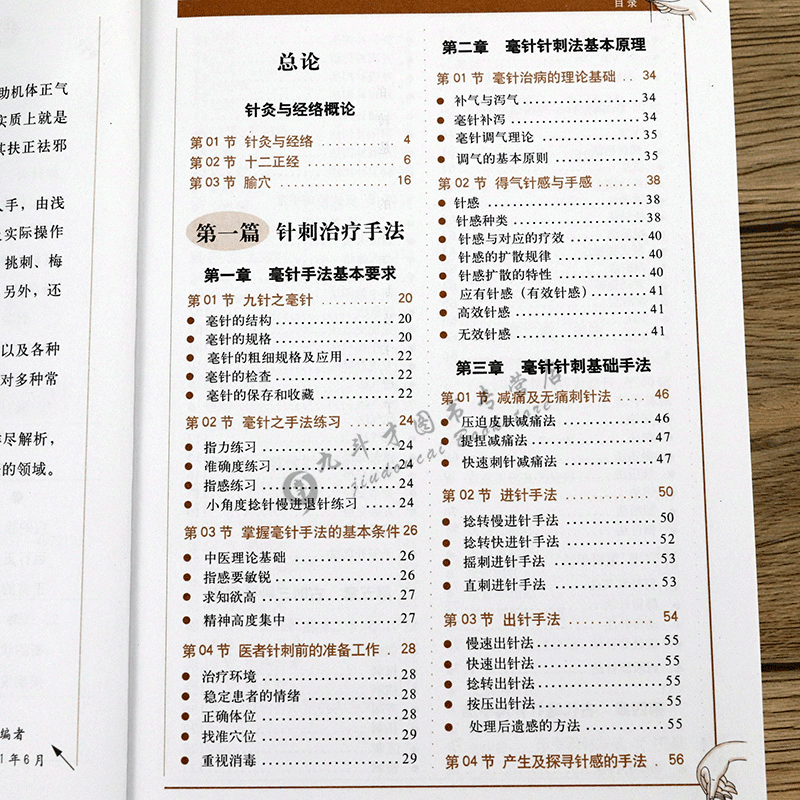 助机体正气
实质上就是
其扶正祛邪
入手，由浅
实际操作
挑刺、梅
另外，还
以及各种
对多种常
尽解析，
的领域。
编者
1年6月
目录
总论
针灸与经络概论
第01节 针灸与经络 ........ 4
第02节 十二正经 ........ 6
第03节 腧穴 ........ 16
第一篇 针刺治疗手法
第一章 毫针手法基本要求
第01节 九针之毫针 ........ 20
● 毫针的结构 ........ 20
● 毫针的规格 ........ 20
● 毫针的粗细规格及应用 ........ 22
● 毫针的检查 ........ 22
● 毫针的保存和收藏 ........ 22
第02节 毫针之手法练习 ........ 24
● 指力练习 ........ 24
● 准确度练习 ........ 24
● 指感练习 ........ 24
● 小角度捻针慢进退针练习 ..... 24
第03节 掌握毫针手法的基本条件 26
● 中医理论基础 ........ 26
● 指感要敏锐 ........ 26
● 求知欲高 ........ 27
● 精神高度集中 ........ 27
第04节 医者针刺前的准备工作 . 28
● 治疗环境 ........ 28
● 稳定患者的情绪 ........ 28
● 正确体位 ........ 28
● 找准穴位 ........ 29
● 重视消毒 ........ 29
第二章 毫针针刺法基本原理
第01节 毫针治病的理论基础 .. 34
● 补气与泻气 ........ 34
● 毫针补泻 ........ 34
● 毫针调气理论 ........ 35
● 调气的基本原则 ........ 35
第02节 得气针感与手感 ........ 38
● 针感 ........ 38
● 针感种类 ........ 38
● 针感与对应的疗效 ........ 40
● 针感的扩散规律 ........ 40
● 针感扩散的特性 ........ 40
● 应有针感（有效针感） ........ 41
● 高效针感 ........ 41
● 无效针感 ........ 41
第三章 毫针针刺基础手法
第01节 减痛及无痛刺针法 .... 46
● 压迫皮肤减痛法 ........ 47
● 提捏减痛法 ........ 47
● 快速刺针减痛法 ........ 47
第02节 进针手法 ........ 50
● 捻转慢进针手法 ........ 50
● 捻转快进针手法 ........ 52
● 摇刺进针手法 ........ 53
● 直刺进针手法 ........ 53
第03节 出针手法 ........ 54
● 慢速出针法 ........ 55
● 快速出针法 ........ 55
● 捻转出针法 ........ 55
● 按压出针法 ........ 55
● 处理后遗感的方法 ........ 55
第04节 产生及探寻针感的手法 . 56
九斗才图书专营店
jiudoucai Bookstore